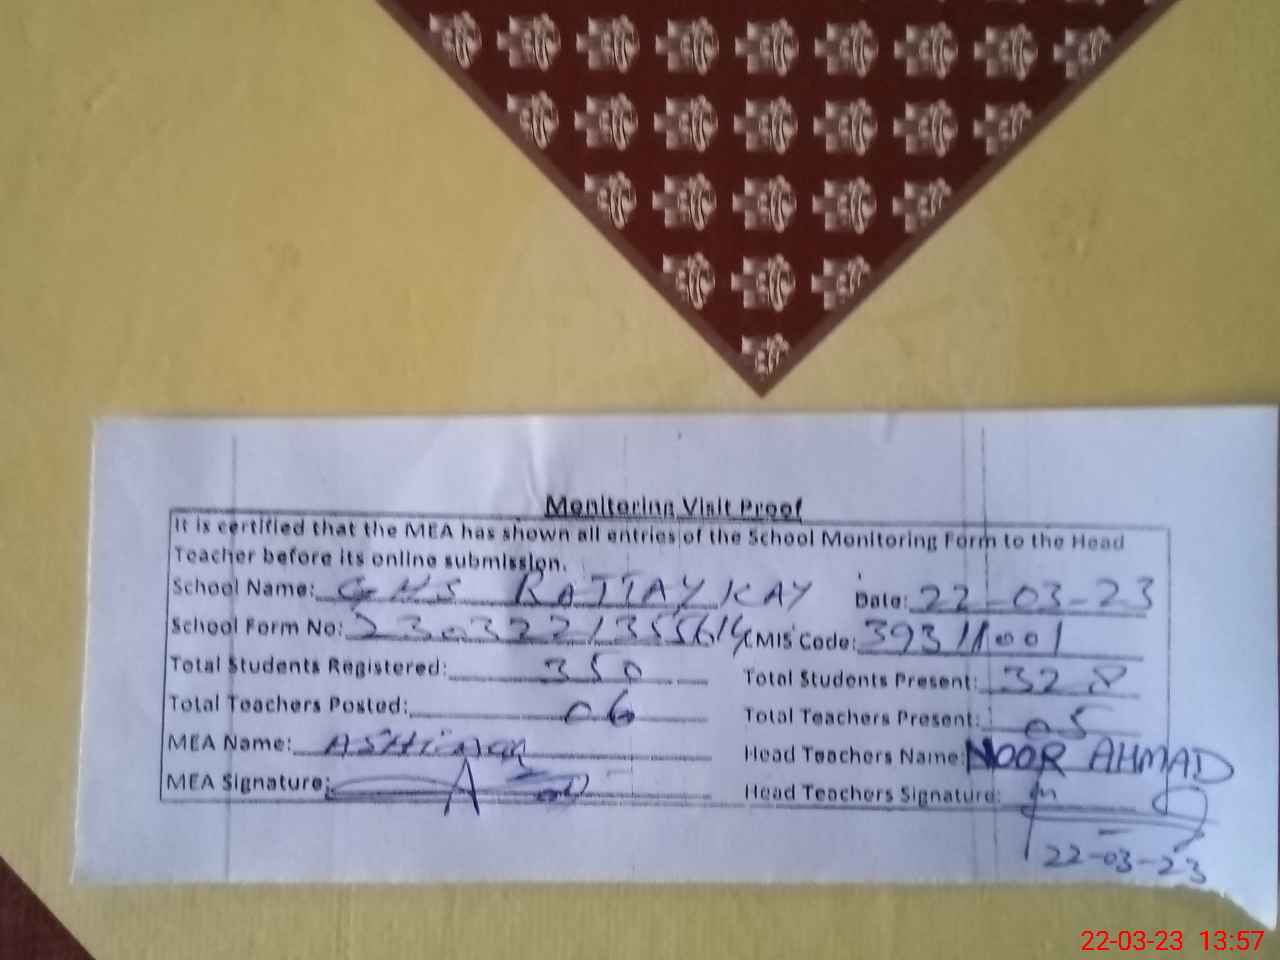 Monitoring Visit Proof
It is certified that the MEA has shown all entries of the School Monitoring Form to the Head
Teacher before its online submission.
School Name: GHS RATTAY KAY Date: 22-03-23
School Form No: EMIS Code: 39311001
Total Students Registered: 350 Total Students Present: 328
Total Teachers Posted: 06 Total Teachers Present: 05
MEA Name: Head Teachers Name: NOOR AHMAD
MEA Signature: Head Teachers Signature:
22-03-23
22-03-23 13:57